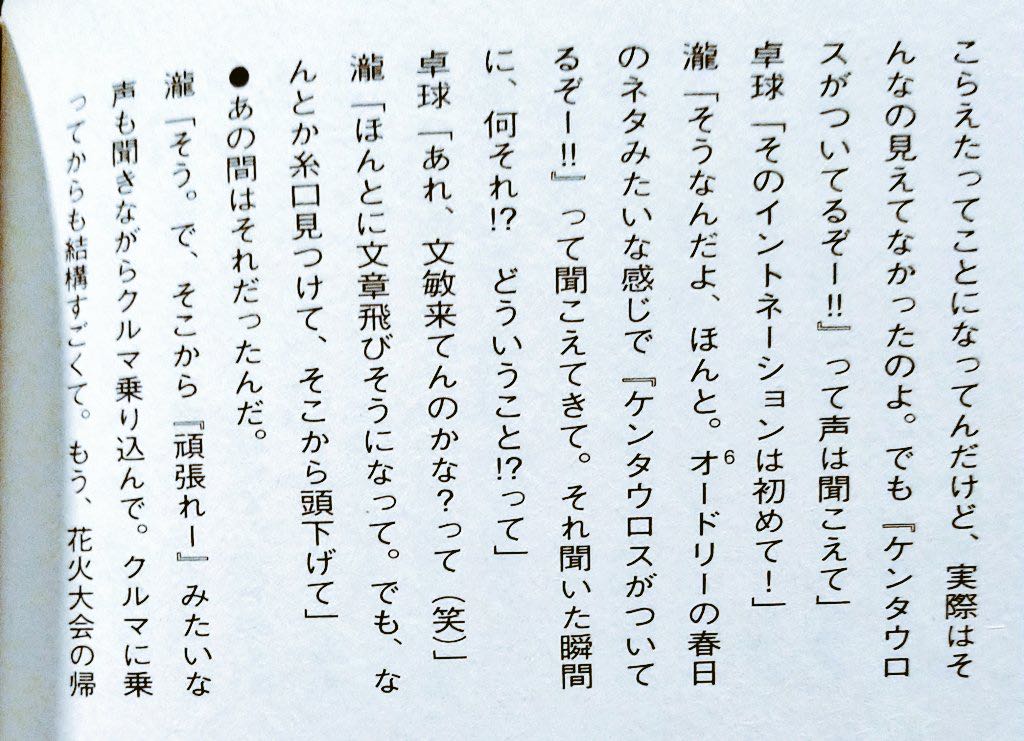 こらえたってことになってんだけど、実際はそ
んなの見えてなかったのよ。でも『ケンタウロ
スがついてるぞー!!』って声は聞こえて」
卓球「そのイントネーションは初めて！」
瀧「そうなんだよ、ほんと。オードリーの春日
6
のネタみたいな感じで『ケンタウロスがついて
るぞー!!』って聞こえてきて。それ聞いた瞬間
に、何それ!?　どういうこと!?って」
卓球「あれ、文敏来てんのかな？って（笑）」
瀧「ほんとに文章飛びそうになって。でも、な
んとか糸口見つけて、そこから頭下げて」
●あの間はそれだったんだ。
瀧「そう。で、そこから『頑張れー』みたいな
声も聞きながらクルマ乗り込んで。クルマに乗
ってからも結構すごくて。もう、花火大会の帰